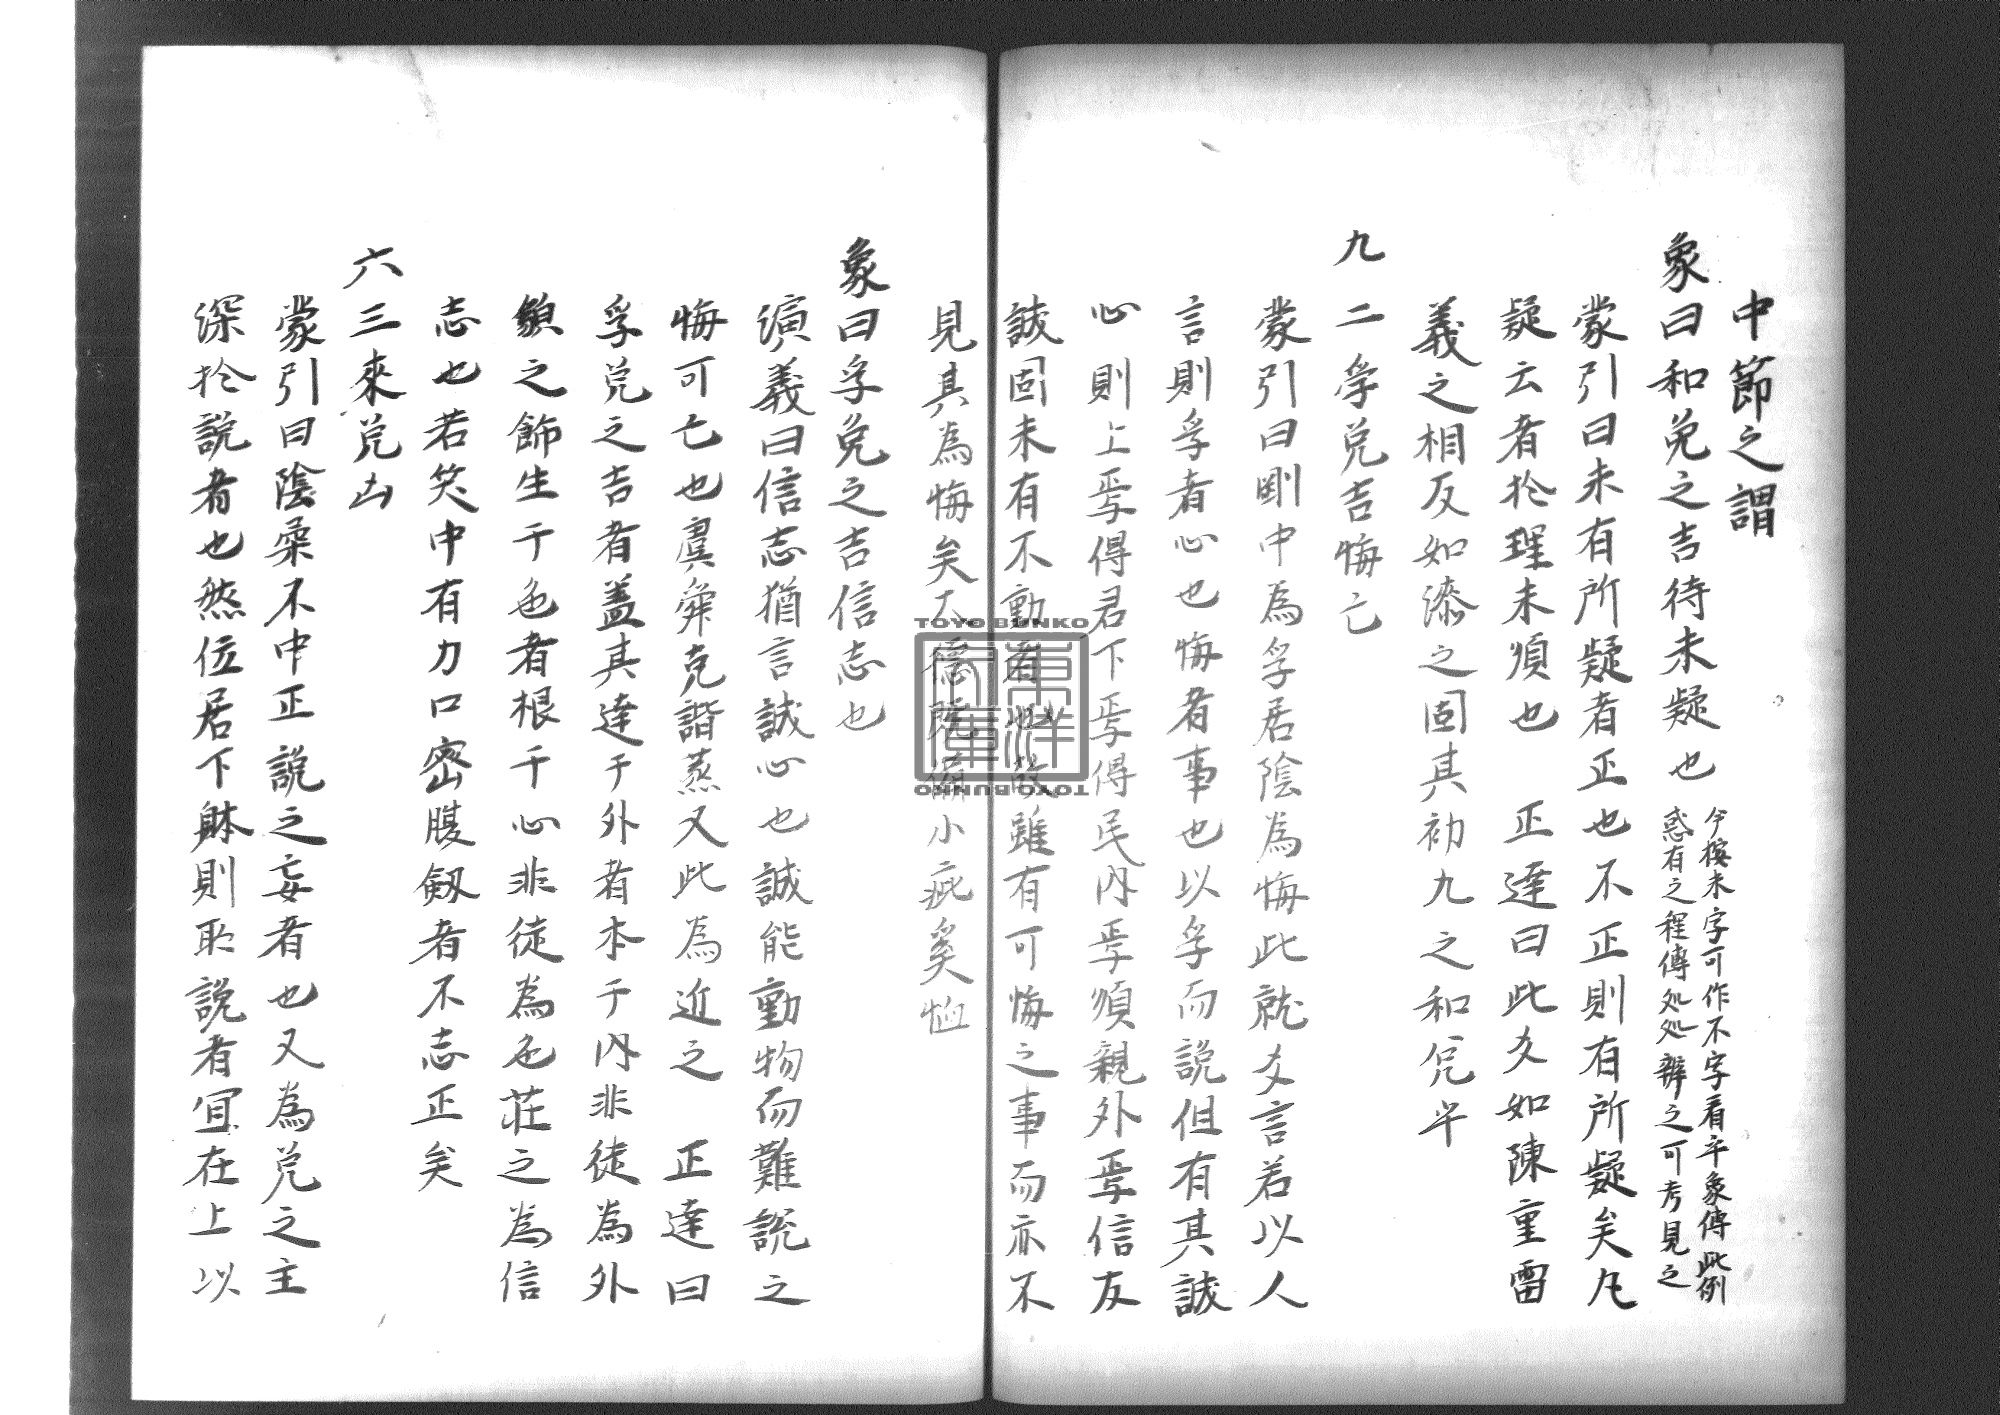 中節之謂
象曰和兌之吉待未疑也 今按未字可作不字看卒象傳此例
惑有之程傳処処辨之可考見之
蒙引曰未有所疑者正也不正則有所疑矣凡
疑云者扵理未順也 正達曰此爻如陳重雷
義之相反如漆之固其初九之和兌乎
九二孚兌吉悔亡
蒙引曰剛中為孚居陰為悔此就爻言若以人
言則孚者心也悔者事也以孚而說但有其誠
心則上焉得君下焉得民内焉順親外焉信友
誠固未有不動者也故雖有可悔之事而亦不
見其為悔矣大德既備小疵奚恤
象曰孚兌之吉信志也
演義曰信志猶言誠心也誠能動物而難說之
悔可亡也虞舜克諧蒸乂此為近之 正達曰
孚兌之吉者盖其達于外者本于内非徒為外
貌之飾生于色者根于心非徒為色莊之為信
志也若笑中有力口密腹劔者不志正矣
六三來兌凶
蒙引曰陰桑不中正說之妄者也又為兌之主
深扵說者也然位居下躰則取說者冝在上以
TOYO BUNKO
東洋文庫
TOYO BUNKO